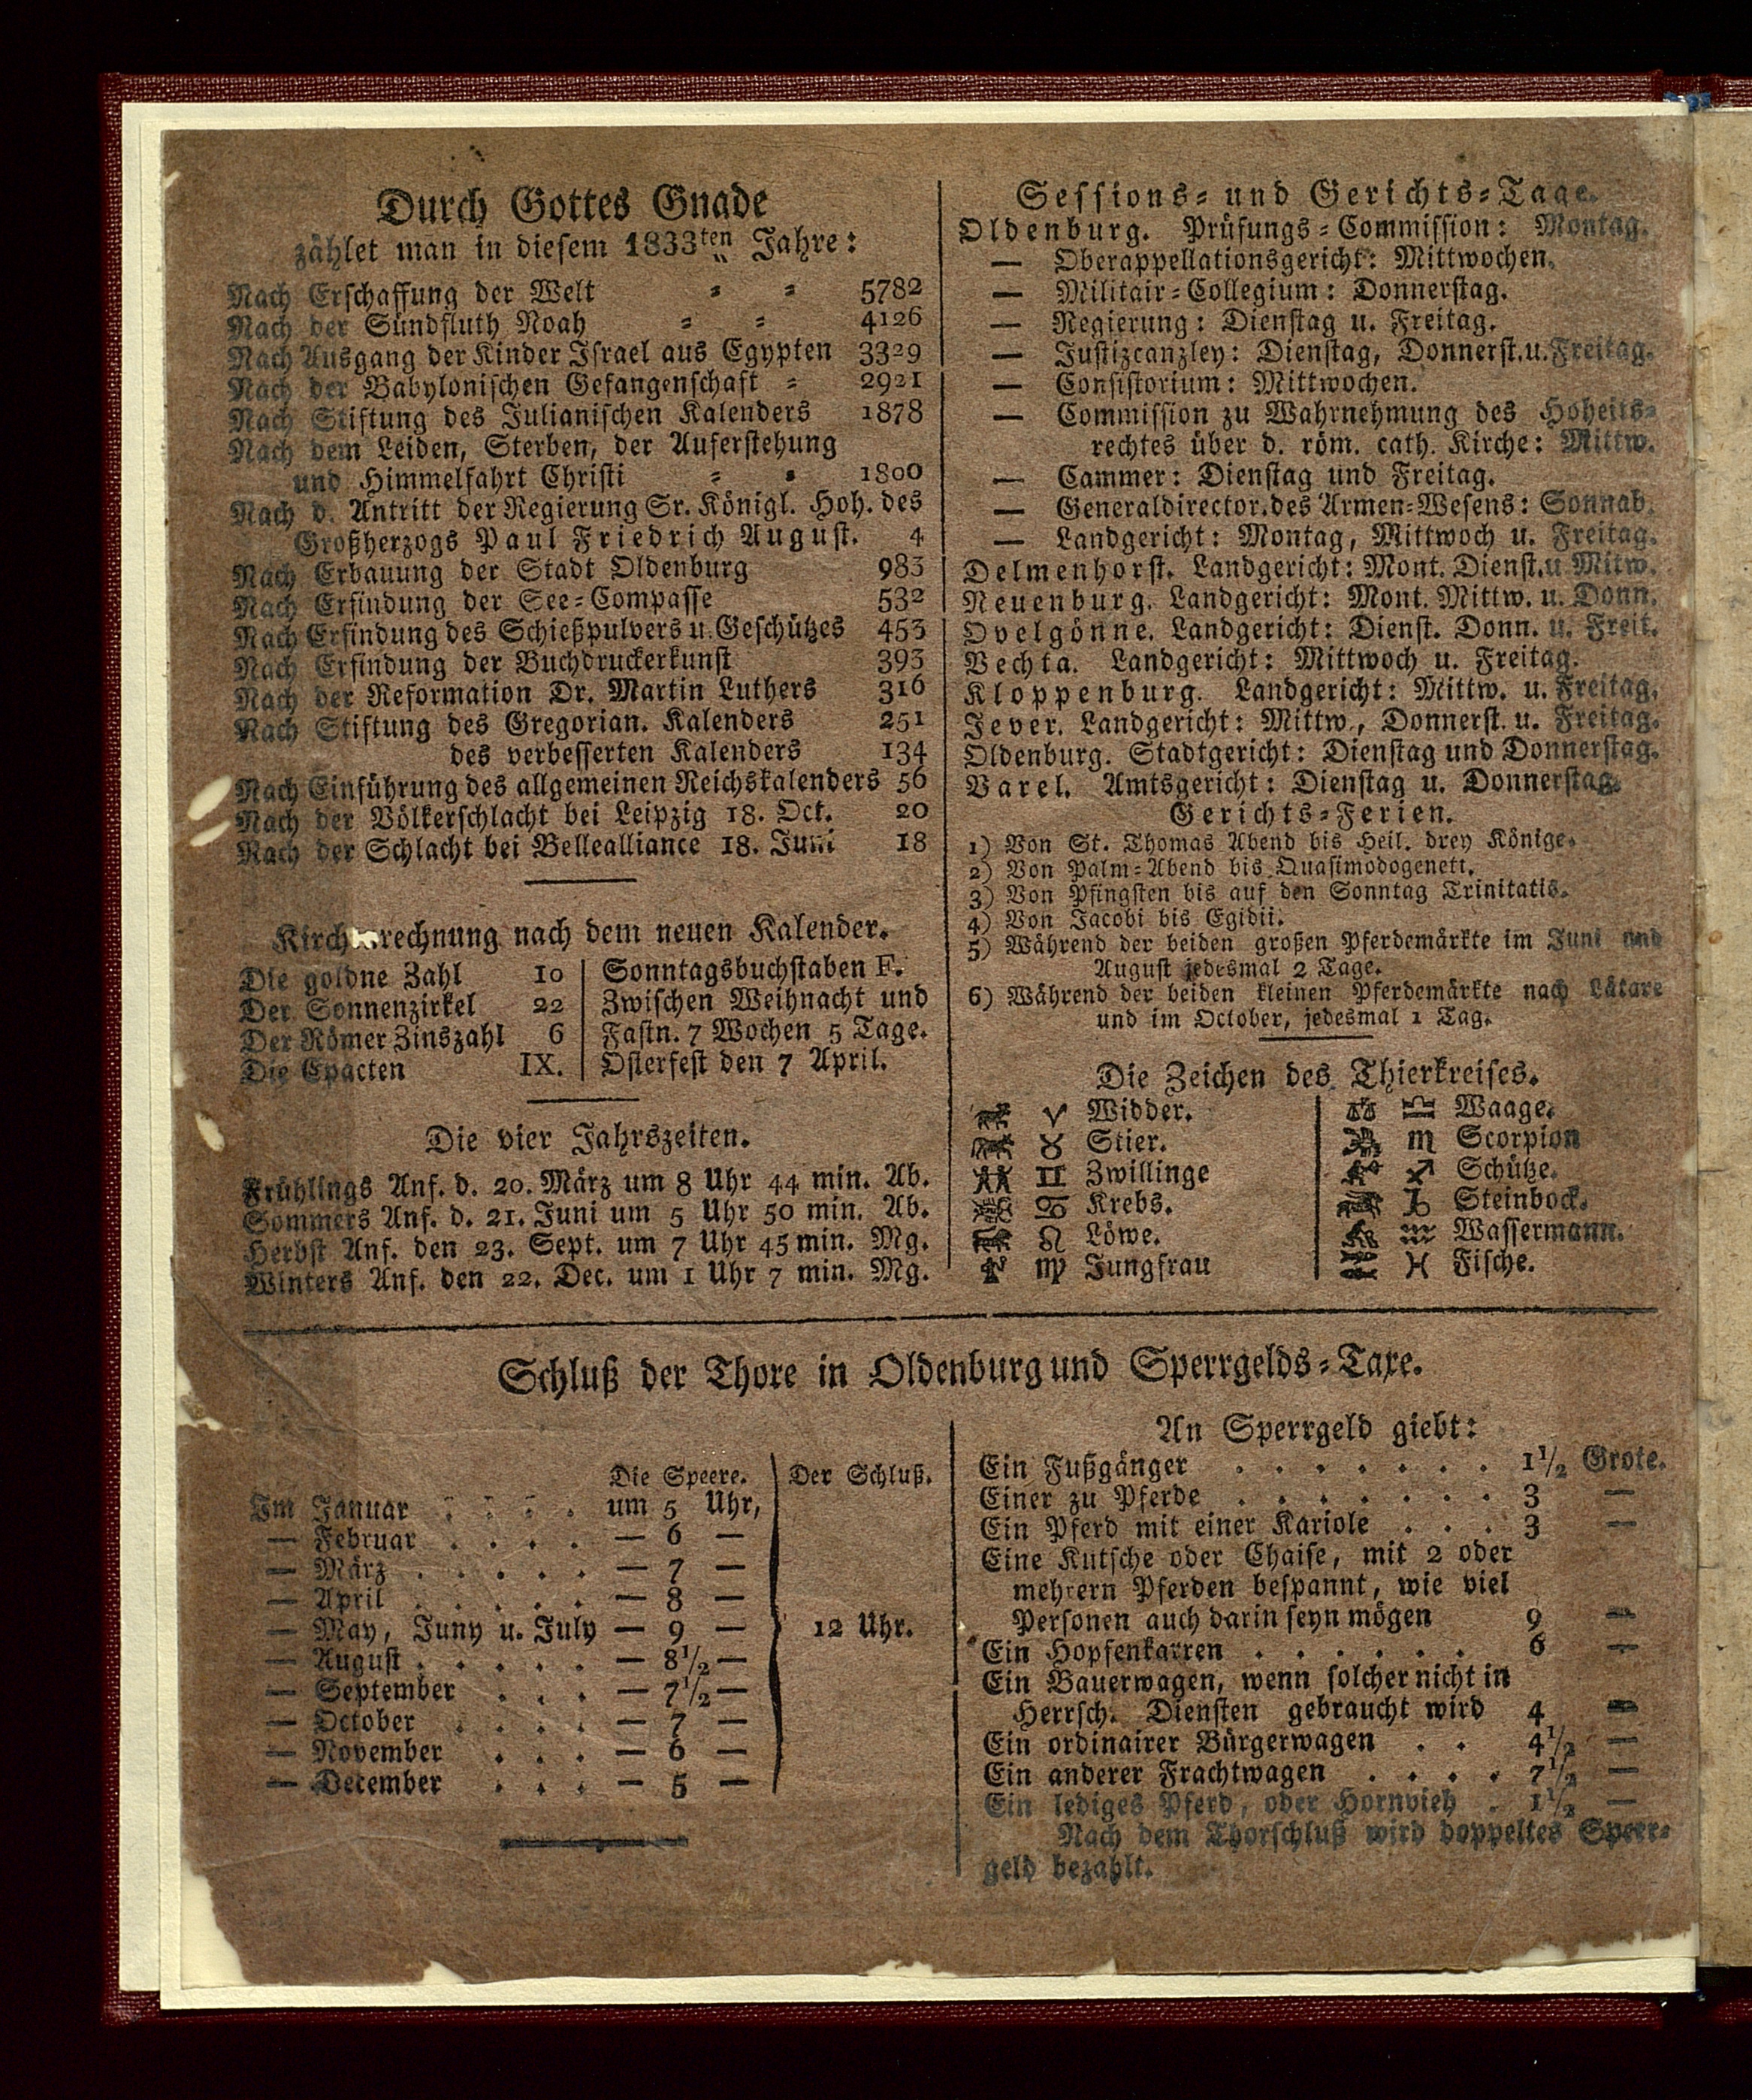 Durch Gottes Gnade
zählet man in diesem 1833ten Jahre:
Nach Erschaffung der Welt = = 5782
Nach der Sündfluth Noah = = 4126
Nach Ausgang der Kinder Israel aus Egypten 3329
Nach der Babylonischen Gefangenschaft = 2921
Nach Stiftung des Julianischen Kalenders 1878
Nach dem Leiden, Sterben, der Auferstehung
und Himmelfahrt Christi = = 1800
Nach d. Antritt der Regierung Sr. Königl. Hoh. des
Großherzogs Paul Friedrich August. 4
Nach Erbauung der Stadt Oldenburg 983
Nach Erfindung der See=Compasse 532
Nach Erfindung des Schießpulvers u. Geschützes 453
Nach Erfindung der Buchdruckerkunst 393
Nach der Reformation Dr. Martin Luthers 316
Nach Stiftung des Gregorian. Kalenders 251
des verbesserten Kalenders 134
Nach Einführung des allgemeinen Reichskalenders 56
Nach der Völkerschlacht bei Leipzig 18. Oct. 20
Nach der Schlacht bei Bellealliance 18. Juni 18
Kirch rechnung nach dem neuen Kalender.
Die goldne Zahl 10
Der Sonnenzirkel 22
Der Römer Zinszahl 6
Die Epacten IX.
Sonntagsbuchstaben F.
Zwischen Weihnacht und
Fastn. 7 Wochen 5 Tage.
Osterfest den 7 April.
Die vier Jahrszeiten.
Frühlings Anf. d. 20. März um 8 Uhr 44 min. Ab.
Sommers Anf. d. 21. Juni um 5 Uhr 50 min. Ab.
Herbst Anf. den 23. Sept. um 7 Uhr 45 min. Mg.
Winters Anf. den 22. Dec. um 1 Uhr 7 min. Mg.
Sessions= und Gerichts=Tage.
Oldenburg. Prüfungs=Commission: Montag.
— Oberappellationsgericht: Mittwochen.
— Militair=Collegium: Donnerstag.
— Regierung: Dienstag u. Freitag.
— Justizcanzley: Dienstag, Donnerst. u. Freitag.
— Consistorium: Mittwochen.
— Commission zu Wahrnehmung des Hoheits=
rechtes über d. röm. cath. Kirche: Mittw.
— Cammer: Dienstag und Freitag.
— Generaldirector. des Armen=Wesens: Sonnab.
— Landgericht: Montag, Mittwoch u. Freitag.
Delmenhorst. Landgericht: Mont. Dienst. u. Mitw.
Neuenburg. Landgericht: Mont. Mittw. u. Donn.
Ovelgönne. Landgericht: Dienst. Donn. u. Freit.
Vechta. Landgericht: Mittwoch u. Freitag.
Kloppenburg. Landgericht: Mittw. u. Freitag.
Jever. Landgericht: Mittw., Donnerst. u. Freitag.
Oldenburg. Stadtgericht: Dienstag und Donnerstag.
Varel. Amtsgericht: Dienstag u. Donnerstag.
Gerichts=Ferien.
1) Von St. Thomas Abend bis Heil. drey Könige.
2) Von Palm=Abend bis Quasimodogeneti.
3) Von Pfingsten bis auf den Sonntag Trinitatis.
4) Von Jacobi bis Egidii.
5) Während der beiden großen Pferdemärkte im Juni und
August jedesmal 2 Tage.
6) Während der beiden kleinen Pferdemärkte nach Lätare
und im October, jedesmal 1 Tag.
Die Zeichen des Thierkreises.
♈ Widder.
♉ Stier.
♊ Zwillinge
♋ Krebs.
♌ Löwe.
♍ Jungfrau
♎ Waage.
♏ Scorpion
♐ Schütze.
♑ Steinbock.
♒ Wassermann.
♓ Fische.
Schluß der Thore in Oldenburg und Sperrgelds=Taxe.
Die Speere. Der Schluß.
Im Januar . . . . um 5 Uhr,
— Februar . . . . — 6 —
— März . . . . . — 7 —
— April . . . . . — 8 —
— May, Juny u. July — 9 — 12 Uhr.
— August . . . . . — 8 1/2 —
— September . . . — 7 1/2 —
— October . . . . — 7 —
— November . . . — 6 —
— December . . . — 5 —
An Sperrgeld giebt:
Ein Fußgänger . . . . . . . 1 1/2 Grote.
Einer zu Pferde . . . . . . . 3 —
Ein Pferd mit einer Kariole . . . 3 —
Eine Kutsche oder Chaise, mit 2 oder
mehrern Pferden bespannt, wie viel
Personen auch darin seyn mögen 9 —
Ein Hopfenkarren . . . . . . 6 —
Ein Bauerwagen, wenn solcher nicht in
Herrsch. Diensten gebraucht wird 4 —
Ein ordinairer Bürgerwagen . . 4 1/2 —
Ein anderer Frachtwagen . . . . 7 1/2 —
Ein lediges Pferd, oder Hornvieh . 1 1/2 —
Nach dem Thorschluß wird doppeltes Speer=
geld bezahlt.